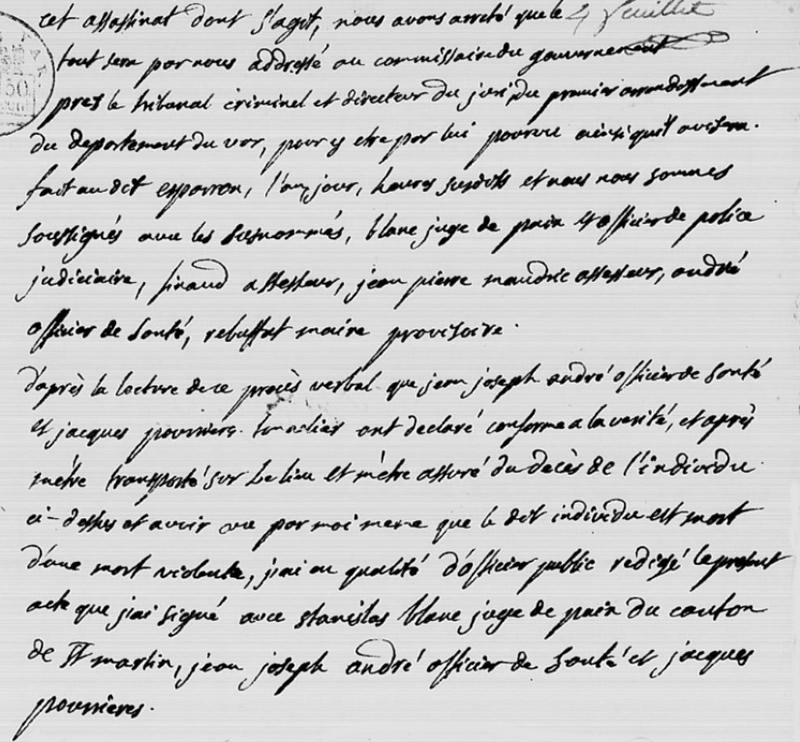 cet assassinat dont s'agit, nous avons arreté que le 4 feuillet
tout sera par nous addressé au commissaire du gouvernement
pres le tribunal criminel et directeur du juri du premier arrondissement
du departement du var, pour y etre par lui pourvu ainsi quil avisera.
fait au dit esparron, l'an, jour, heures susdits et nous nous sommes
soussignés avec les susnommés, blanc juge de paix et officier de police
judiciaire, sinaud assesseur, jean pierre maudric assesseur, andré
officier de santé, rebuffat maire provisoire.
d'après la lecture de ce procès verbal que jean joseph andré officier de santé
et jacques pourrieres ont declaré conforme a la verité, et après
m'etre transporté sur le lieu et m'etre assuré du decès de l'individu
ci-dessus et avoir vu par moi meme que le dit individu est mort
d'une mort violente, j'ai en qualité d'officier public redigé le present
acte que j'ai signé avec stanislas blanc juge de paix du canton
de St martin, jean joseph andré officier de santé et jacques
pourrières.